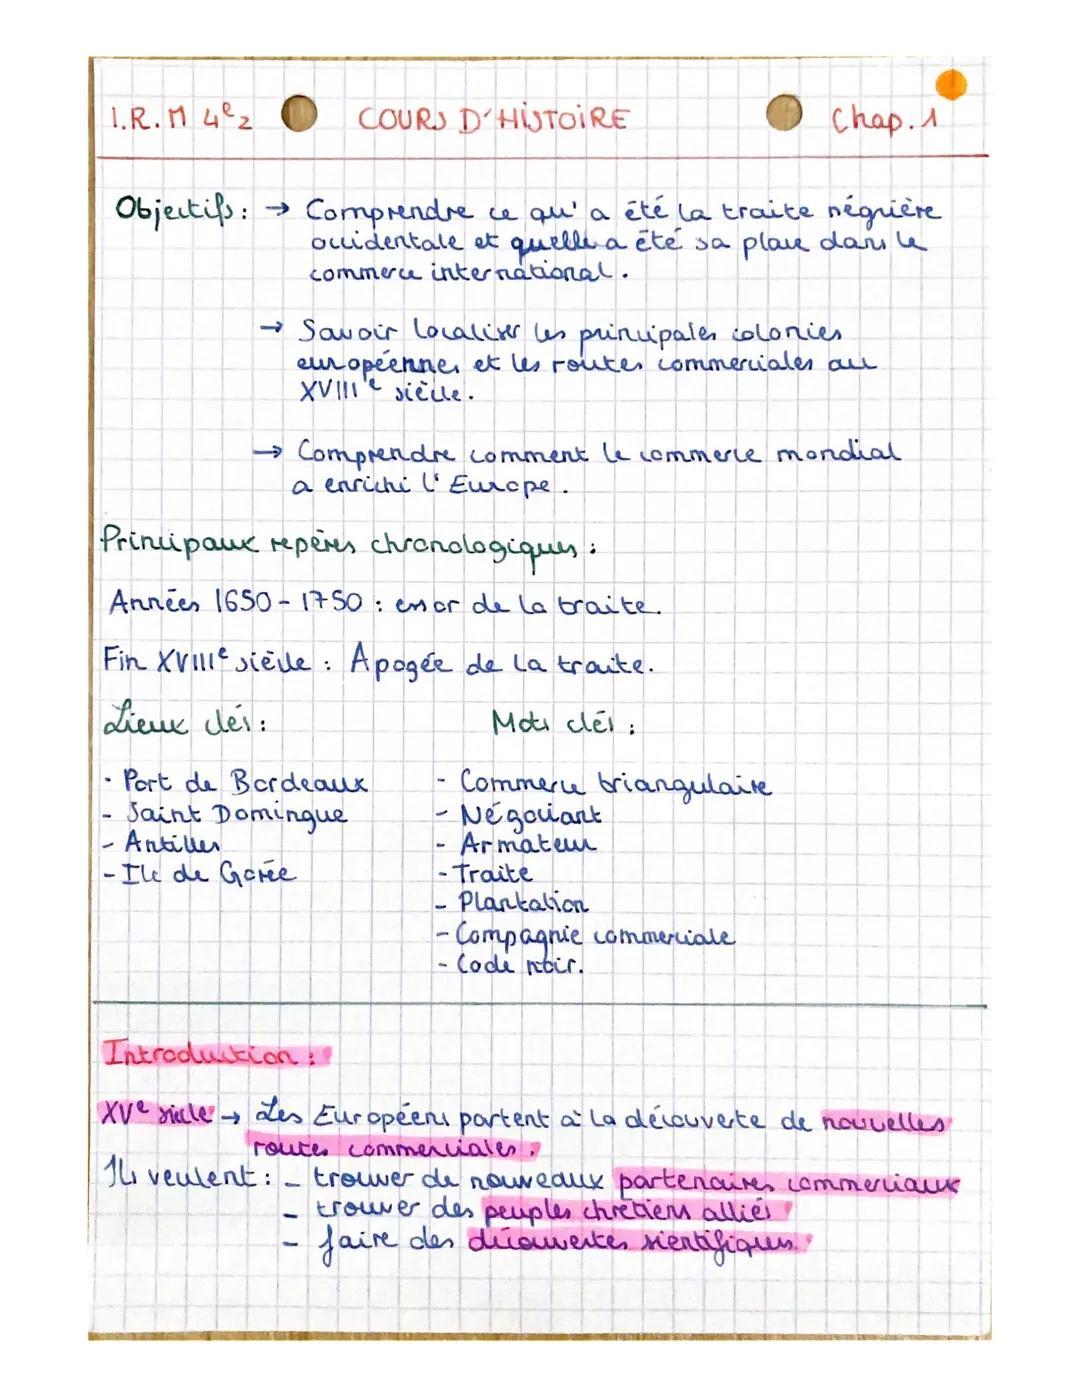 I.R.M 4e2 COURS D'HISTOIRE Chap.1
Objectifs : → Comprendre ce qu'a été la traite négrière
occidentale et quelle a été sa place dans le
commerce international.
→ Savoir localiser les principales colonies
européennes et les routes commerciales au
XVIIIe siècle.
→ Comprendre comment le commerce mondial
a enrichi l'Europe.
Principaux repères chronologiques :
Années 1650-1750 : essor de la traite.
Fin XVIIIe siècle : Apogée de la traite.
Lieux clés : Mots clés :
- Port de Bordeaux - Commerce triangulaire
- Saint Domingue - Négociant
- Antilles - Armateur
- Ile de Gorée - Traite
- Plantation
- Compagnie commerciale
- Code noir.
Introduction :
XVe siècle → Les Européens partent à la découverte de nouvelles
routes commerciales.
Ils veulent : - trouver de nouveaux partenaires commerciaux
- trouver des peuples chrétiens alliés
- faire des découvertes sientifiques.